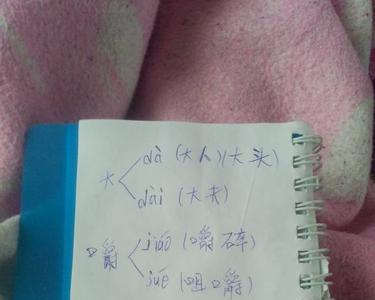 大 dà (大人)(大头)
dài (大夫)
嚼 jiáo (嚼碎)
jué (咀嚼)